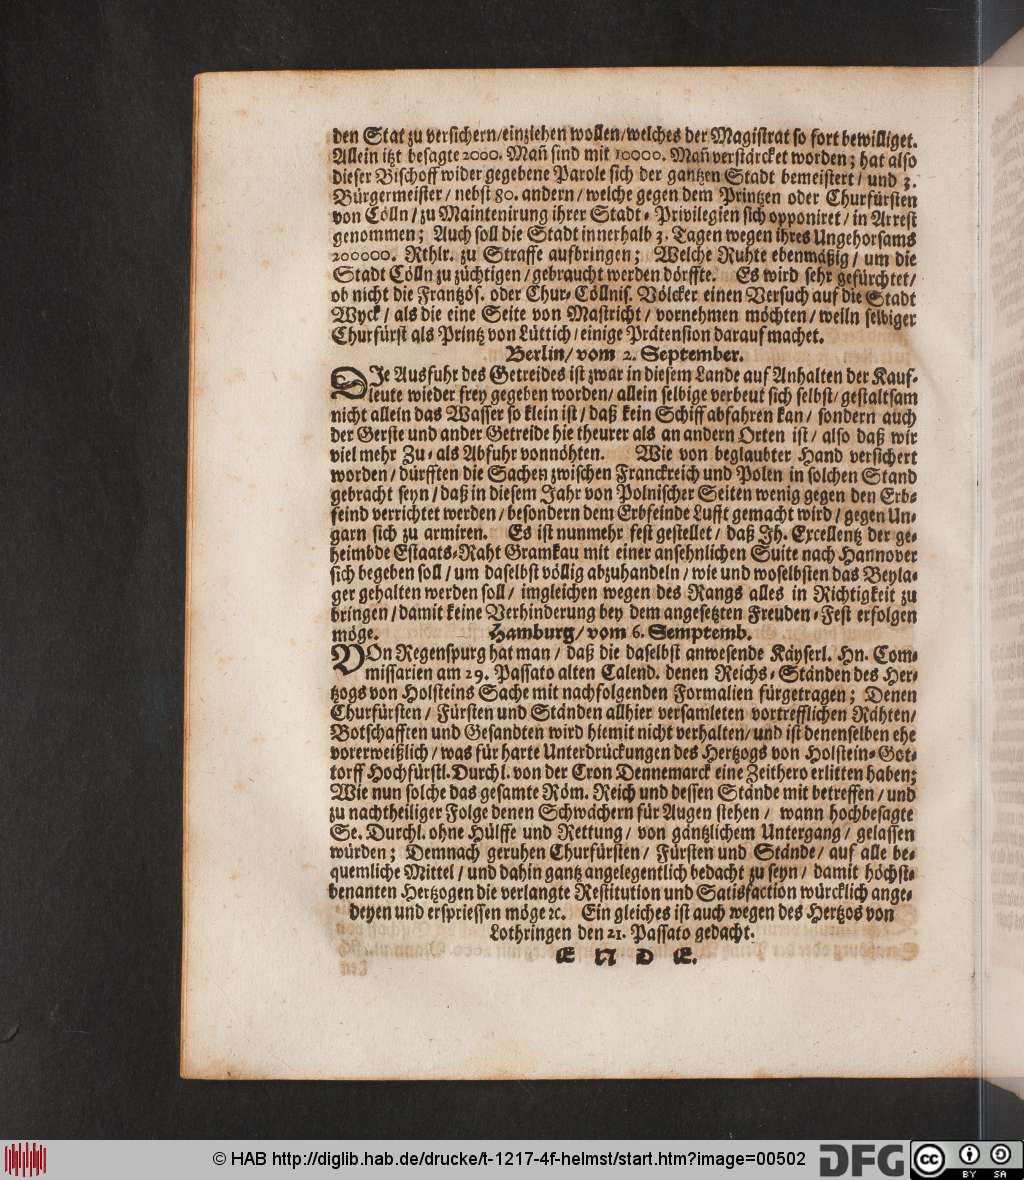 den Stat zu versichern/einziehen wollen/welches der Magistrat so fort bewilliget.
Allein itzt besagte 2000. Mañ sind mit 10000. Mañ verstärcket worden; hat also
dieser Bischoff wider gegebene Parole sich der gantzen Stadt bemeistert/ und 3.
Bürgermeister/ nebst 80. andern/ welche gegen dem Printzen oder Churfürsten
von Cölln/ zu Maintenirung ihrer Stadt-Privilegien sich opponiret/ in Arrest
genommen; Auch soll die Stadt innerhalb 3. Tagen wegen ihres Ungehorsams
200000. Rthlr. zu Straffe aufbringen; Welche Ruhte ebenmäßig/ um die
Stadt Cölln zu züchtigen/ gebraucht werden dörffte. Es wird sehr gefürchtet/
ob nicht die Frantzös. oder Chur-Cöllnis. Völcker einen Versuch auf die Stadt
Wyck/ als die eine Seite von Mastricht/ vornehmen möchten/ weiln selbiger
Churfürst als Printz von Lüttich/ einige Prätension darauf machet.
Berlin/ vom 2. September.
DIe Ausfuhr des Getreides ist zwar in diesem Lande auf Anhalten der Kauf-
leute wieder frey gegeben worden/ allein selbige verbeut sich selbst/ gestaltsam
nicht allein das Wasser so klein ist/ daß kein Schiff abfahren kan/ sondern auch
der Gerste und ander Getreide hie theurer als an andern Orten ist/ also daß wir
viel mehr Zu- als Abfuhr vonnöhten. Wie von beglaubter Hand versichert
worden/ dürfften die Sachen zwischen Franckreich und Polen in solchen Stand
gebracht seyn/ daß in diesem Jahr von Polnischer Seiten wenig gegen den Erb-
feind verrichtet werden/ besondern dem Erbfeinde Lufft gemacht wird/ gegen Un-
garn sich zu armiren. Es ist nunmehr fest gestellet/ daß Ih. Excellentz der ge-
heimbde Estaats-Raht Gramkau mit einer ansehnlichen Suite nach Hannover
sich begeben soll/ um daselbst völlig abzuhandeln/ wie und woselbsten das Beyla-
ger gehalten werden soll/ imgleichen wegen des Rangs alles in Richtigkeit zu
bringen/ damit keine Verhinderung bey dem angesetzten Freuden-Fest erfolgen
möge. Hamburg/ vom 6. Semptemb.
VOn Regenspurg hat man/ daß die daselbst anwesende Käyserl. Hn. Com-
missarien am 29. Passato alten Calend. denen Reichs-Ständen des Her-
tzogs von Holsteins Sache mit nachfolgenden Formalien fürgetragen; Denen
Churfürsten/ Fürsten und Ständen allhier versamleten vortrefflichen Rähten/
Botschafften und Gesandten wird hiemit nicht verhalten/ und ist denenselben ehe
vorerweißlich/ was für harte Unterdrückungen des Hertzogs von Holstein-Got-
torff Hochfürstl. Durchl. von der Cron Dennemarck eine Zeithero erlitten haben;
Wie nun solche das gesamte Röm. Reich und dessen Stände mit betreffen/ und
zu nachtheiliger Folge denen Schwächern für Augen stehen/ wann hochbesagte
Se. Durchl. ohne Hülffe und Rettung/ von gäntzlichem Untergang/ gelassen
würden; Demnach geruhen Churfürsten/ Fürsten und Stände/ auf alle be-
quemliche Mittel/ und dahin gantz angelegentlich bedacht zu seyn/ damit höchst-
benanten Hertzogen die verlangte Restitution und Satisfaction würcklich ange-
deyen und erspriessen möge ꝛc. Ein gleiches ist auch wegen des Hertzos von
Lothringen den 21. Passato gedacht.
E N D E.
© HAB http://diglib.hab.de/drucke/t-1217-4f-helmst/start.htm?image=00502
DFG
cc BY SA